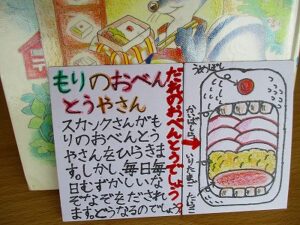 もりのおべん
とうやさん
スカンクさんがも
りのおべんとう
やさんをひらきま
す。しかし、毎日毎
日むずかしいな
ぞなぞをだされ
ます。どうなるのでしょう
だれのおべんとうでしょう
うめぼし
かいばしら
いりたまご
たらこ